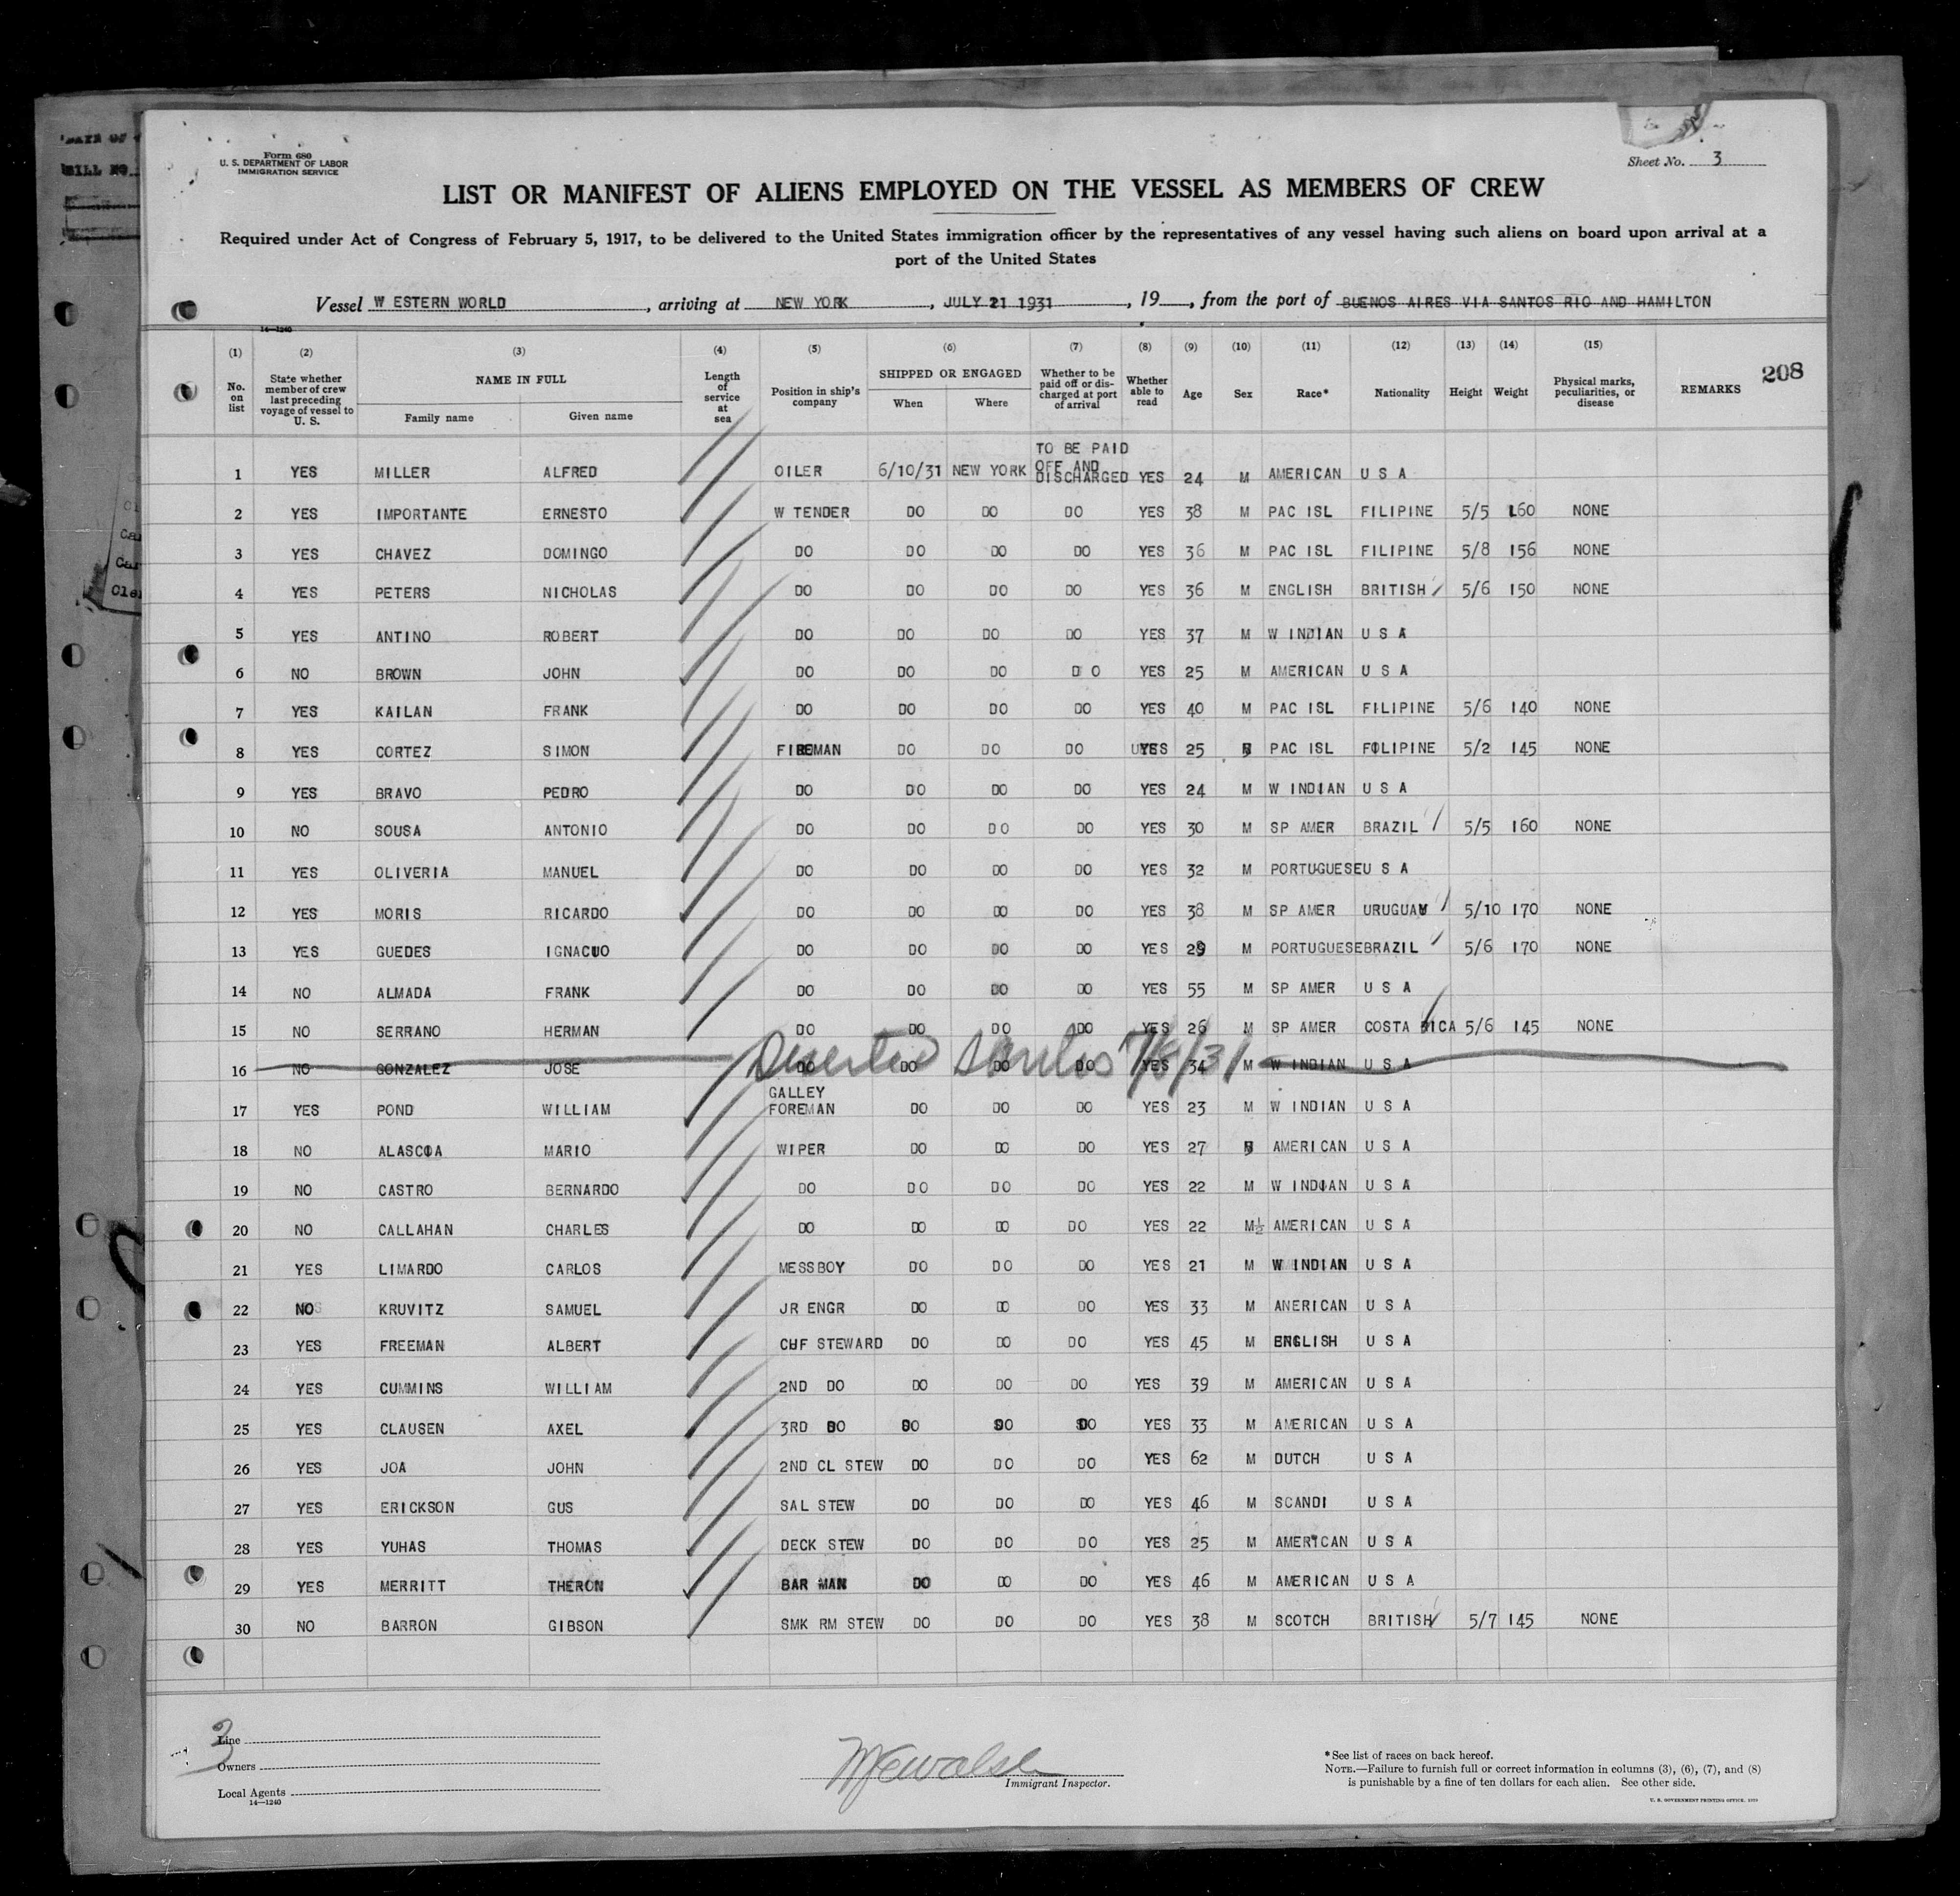 Form 680
U. S. DEPARTMENT OF LABOR
IMMIGRATION SERVICE
Sheet No. 3
LIST OR MANIFEST OF ALIENS EMPLOYED ON THE VESSEL AS MEMBERS OF CREW
Required under Act of Congress of February 5, 1917, to be delivered to the United States immigration officer by the representatives of any vessel having such aliens on board upon arrival at a
port of the United States
Vessel W ESTERN WORLD, arriving at NEW YORK, JULY 21 1931, 19, from the port of BUENOS AIRES VIA SANTOS RIO AND HAMILTON
14—1240
(1) (2) (3) (4) (5) (6) (7) (8) (9) (10) (11) (12) (13) (14) (15)
No. on list State whether member of crew last preceding voyage of vessel to U. S. NAME IN FULL Family name Given name Length of service at sea Position in ship's company SHIPPED OR ENGAGED When Where Whether to be paid off or discharged at port of arrival Whether able to read Age Sex Race* Nationality Height Weight Physical marks, peculiarities, or disease REMARKS 208
1 YES MILLER ALFRED OILER 6/10/31 NEW YORK TO BE PAID OFF AND DISCHARGED YES 24 M AMERICAN U S A
2 YES IMPORTANTE ERNESTO W TENDER DO DO DO YES 38 M PAC ISL FILIPINE 5/5 160 NONE
3 YES CHAVEZ DOMINGO DO DO DO DO YES 36 M PAC ISL FILIPINE 5/8 156 NONE
4 YES PETERS NICHOLAS DO DO DO DO YES 36 M ENGLISH BRITISH 5/6 150 NONE
5 YES ANTINO ROBERT DO DO DO DO YES 37 M W INDIAN U S A
6 NO BROWN JOHN DO DO DO D O YES 25 M AMERICAN U S A
7 YES KAILAN FRANK DO DO DO DO YES 40 M PAC ISL FILIPINE 5/6 140 NONE
8 YES CORTEZ SIMON FIREMAN DO DO DO YES 25 M PAC ISL FILIPINE 5/2 145 NONE
9 YES BRAVO PEDRO DO DO DO DO YES 24 M W INDIAN U S A
10 NO SOUSA ANTONIO DO DO DO DO YES 30 M SP AMER BRAZIL 5/5 160 NONE
11 YES OLIVERIA MANUEL DO DO DO DO YES 32 M PORTUGUESE U S A
12 YES MORIS RICARDO DO DO DO DO YES 38 M SP AMER URUGUAY 5/10 170 NONE
13 YES GUEDES IGNACUO DO DO DO DO YES 29 M PORTUGUESE BRAZIL 5/6 170 NONE
14 NO ALMADA FRANK DO DO DO DO YES 55 M SP AMER U S A
15 NO SERRANO HERMAN DO DO DO DO YES 26 M SP AMER COSTA RICA 5/6 145 NONE
16 NO GONZALEZ JOSE DO DO DO DO YES 34 M W INDIAN U S A
Deserted Santos 7/8/31
17 YES POND WILLIAM GALLEY FOREMAN DO DO DO YES 23 M W INDIAN U S A
18 NO ALASCIA MARIO WIPER DO DO DO YES 27 M AMERICAN U S A
19 NO CASTRO BERNARDO DO DO DO DO YES 22 M W INDIAN U S A
20 NO CALLAHAN CHARLES DO DO DO DO YES 22 M½ AMERICAN U S A
21 YES LIMARDO CARLOS MESSBOY DO DO DO YES 21 M W INDIAN U S A
22 NO KRUVITZ SAMUEL JR ENGR DO DO DO YES 33 M ANERICAN U S A
23 YES FREEMAN ALBERT CHF STEWARD DO DO DO YES 45 M ENGLISH U S A
24 YES CUMMINS WILLIAM 2ND DO DO DO DO YES 39 M AMERICAN U S A
25 YES CLAUSEN AXEL 3RD DO DO DO DO YES 33 M AMERICAN U S A
26 YES JOA JOHN 2ND CL STEW DO DO DO YES 62 M DUTCH U S A
27 YES ERICKSON GUS SAL STEW DO DO DO YES 46 M SCANDI U S A
28 YES YUHAS THOMAS DECK STEW DO DO DO YES 25 M AMERICAN U S A
29 YES MERRITT THERON BAR MAN DO DO DO YES 46 M AMERICAN U S A
30 NO BARRON GIBSON SMK RM STEW DO DO DO YES 38 M SCOTCH BRITISH 5/7 145 NONE
3
Line
Owners
Local Agents
14—1240
Immigrant Inspector.
*See list of races on back hereof.
NOTE.—Failure to furnish full or correct information in columns (3), (6), (7), and (8)
is punishable by a fine of ten dollars for each alien. See other side.